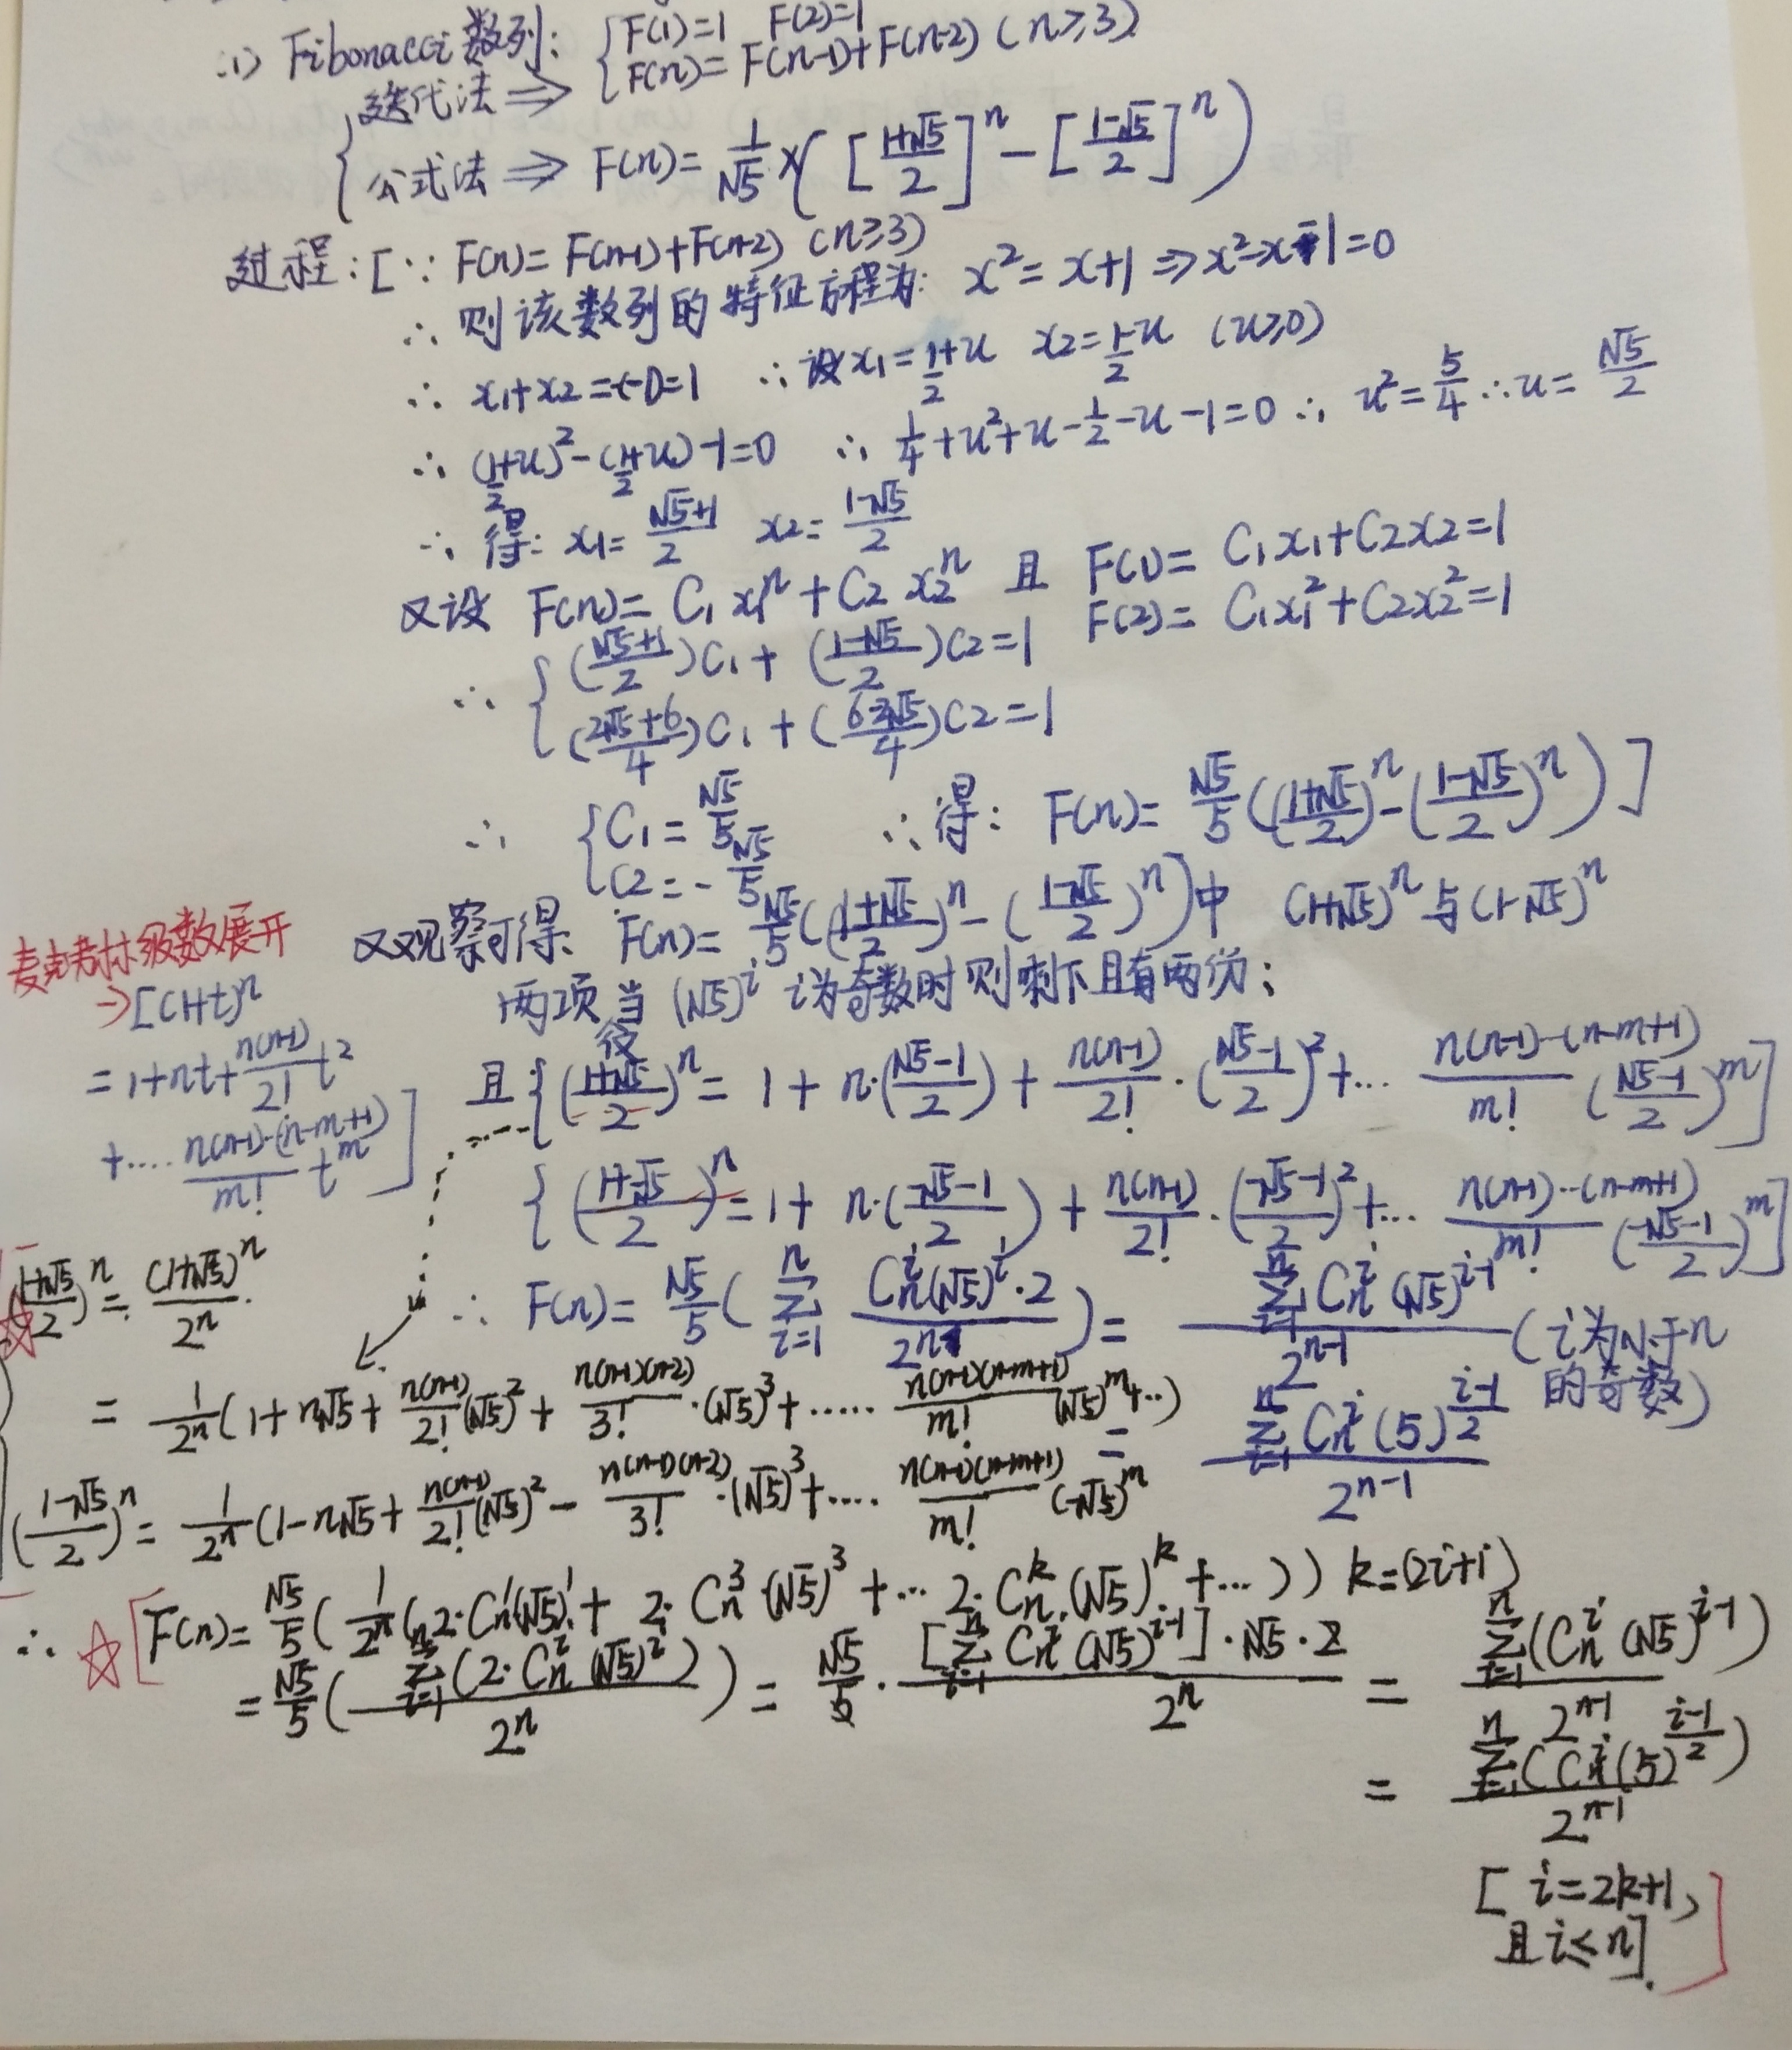 (1) Fibonacci数列: { F(1)=1 F(2)=1
F(n)= F(n-1)+F(n-2) (n≥3)
{ 迭代法 ⇒
公式法 ⇒ F(n)= 1/√5 × ( [ (1+√5)/2 ]^n − [ (1-√5)/2 ]^n )
过程: [ ∵ F(n)= F(n-1)+F(n-2) (n≥3)
∴ 则该数列的特征方程为: x²= x+1 ⇒ x²-x-1=0
∴ x1+x2 =-(-1)=1 ∴ 设 x1= 1/2+u x2= 1/2-u (u≥0)
∴ (1/2+u)²-(1/2+u)-1=0 ∴ 1/4+u²+u-1/2-u-1=0 ∴ u²=5/4 ∴ u= √5/2
∴ 得: x1= (√5+1)/2 x2= (1-√5)/2
又设 F(n)= C1 x1^n + C2 x2^n 且 F(1)= C1x1+C2x2=1
F(2)= C1x1²+C2x2²=1
∴ { ((√5+1)/2)C1 + ((1-√5)/2)C2=1
((2√5+6)/4)C1 + ((6-2√5)/4)C2=1
∴ { C1= √5/5
C2=- √5/5
∴ 得: F(n)= √5/5 (((1+√5)/2)^n-((1-√5)/2)^n) ]
又观察可得: F(n)= √5/5 (((1+√5)/2)^n-((1-√5)/2)^n)中 (1+√5)^n与(1-√5)^n
两项当 (√5)^i i为奇数时则剩下且有两份;
麦克劳林级数展开
→[(1+t)^n
= 1+nt+ n(n-1)/2! t²
+.... n(n-1)-(n-m+1)/m! t^m ]
且 { ((1+√5)/2)^n= 1+ n·((√5-1)/2) + n(n-1)/2! · ((√5-1)/2)²+... n(n-1)-(n-m+1)/m! ((√5-1)/2)^m ]
{ ((1-√5)/2)^n=1+ n·((-√5-1)/2) + n(n-1)/2! · ((-√5-1)/2)²+... n(n-1)··(n-m+1)/m! ((-√5-1)/2)^m ]
∴ F(n)= √5/5 ( Σ_{i=1}^{n} Cn^i(√5)^i·2 / 2^n ) = Σ_{i=1}^{n} Cn^i (√5)^{i-1} / 2^{n-1} (i为小于n的奇数)
= Σ_{i=1}^{n} Cn^i (5)^{(i-1)/2} / 2^{n-1}
((1+√5)/2)^n = (1+√5)^n / 2^n
= 1/2^n (1+n√5+ n(n-1)/2! (√5)² + n(n-1)(n-2)/3! ·(√5)³+..... n(n-1)(n-m+1)/m! (√5)^m+..)
((1-√5)/2)^n= 1/2^n (1-n√5+ n(n-1)/2! (√5)² − n(n-1)(n-2)/3! ·(√5)³+.... n(n-1)(n-m+1)/m! (-√5)^m
∴ ☆ [ F(n)= √5/5 ( 1/2^n (2·Cn^1(√5)^1+ 2·Cn^3·(√5)³ +... 2·Cn^k·(√5)^k+...)) k=(2i+1)
= √5/5 ( Σ_{i=1}^{n}(2·Cn^i (√5)^i) / 2^n ) = √5/5 · [Σ_{i=1}^{n} Cn^i (√5)^{i-1}]·√5·2 / 2^n = Σ_{i=1}^{n}(Cn^i (√5)^{i-1}) / 2^{n-1}
= Σ_{i=1}^{n}(Cn^i(5)^{(i-1)/2}) / 2^{n-1}
[ i=2k+1,
且 i≤n]. ]